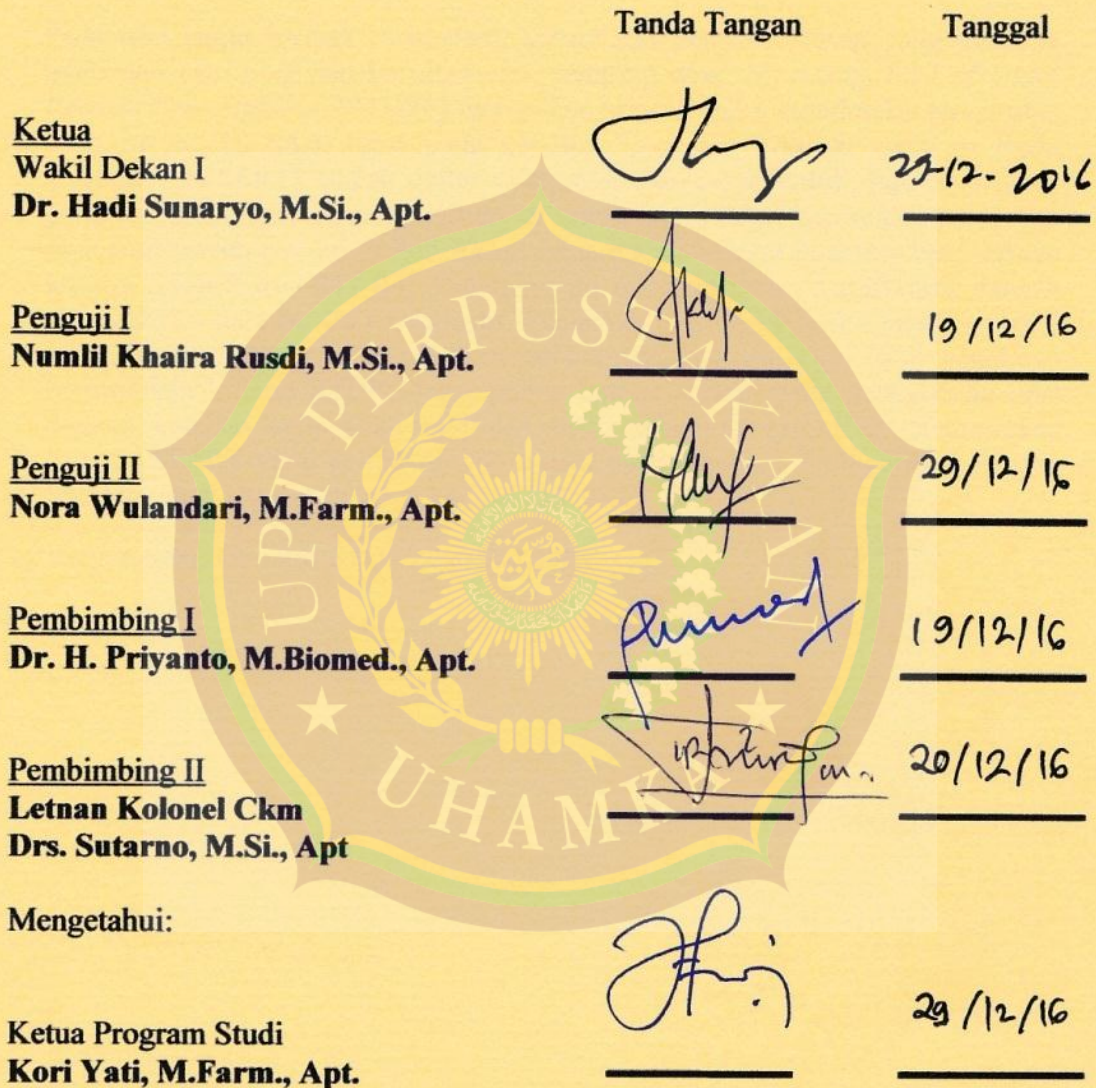 Tanda Tangan Tanggal
Ketua
Wakil Dekan I
Dr. Hadi Sunaryo, M.Si., Apt. 29-12-2016
Penguji I
Numlil Khaira Rusdi, M.Si., Apt. 19/12/16
Penguji II
Nora Wulandari, M.Farm., Apt. 29/12/16
Pembimbing I
Dr. H. Priyanto, M.Biomed., Apt. 19/12/16
Pembimbing II 20/12/16
Letnan Kolonel Ckm
Drs. Sutarno, M.Si., Apt
Mengetahui:
Ketua Program Studi 29/12/16
Kori Yati, M.Farm., Apt.
UPT PERPUSTAKAAN
UHAMKA